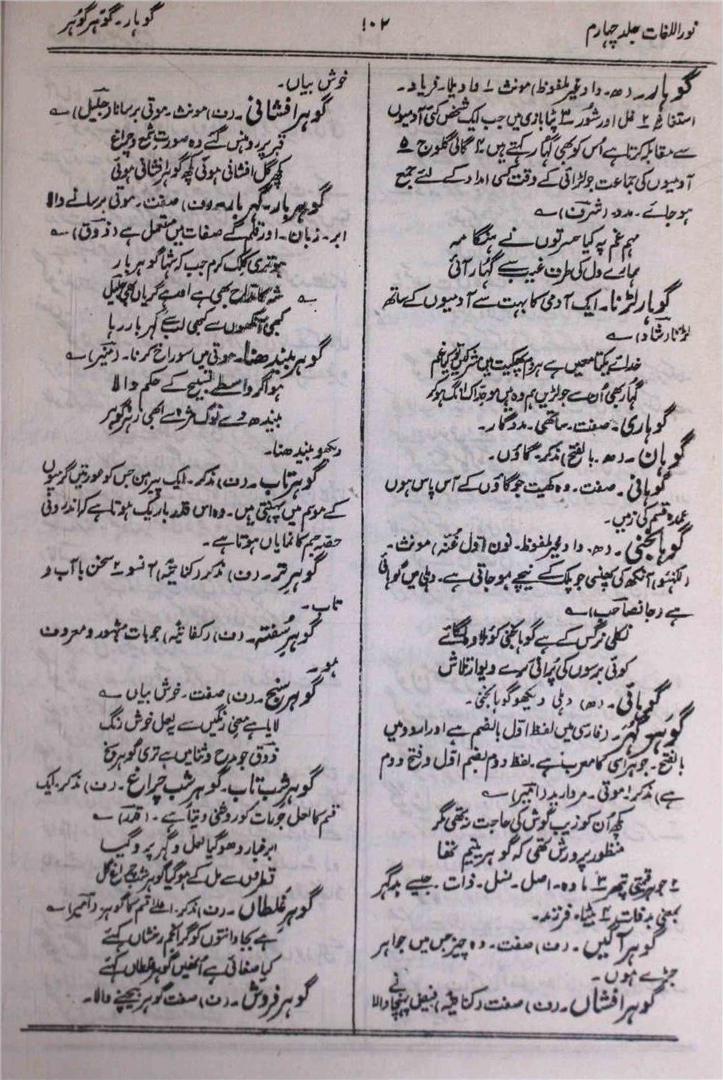 نور اللغات جلد چہارم
۱۰۲
گوہار۔ گوہر گوہر
گوہار۔ (ھ۔ واو غیر ملفوظ) مونث ۱ واویلا۔ فریاد۔
استغاثہ ۲ غل اور شور ۳ پٹا بازی میں جب ایک شخص کئی آدمیوں
سے مقابلہ کرتا ہے اُس کو بھی گہار کہتے ہیں ۴ گالی گلوج ۵
آدمیوں کی جماعت جو لڑائی کے وقت کسی امداد کے لئے جمع
ہو جائے۔ مدد۔ (شرف) ؎
ہم غم پہ کیا حسرتوں نے ہنگامہ
ہمارے دل کی طرف غیب سے گہار آئی
گوہار لڑنا۔ ایک آدمی کا بہت سے آدمیوں کے ساتھ
لڑنا (رشاد) ؎
گہار بھی اُن سے جو لڑیں ہم وہ ہیں موجد اک انگ ہو کر
گوہاری۔ صفت۔ ساتھی۔ مددگار۔
گوہان۔ (ھ۔ بالفتح) مذکر۔ گاؤں۔
گوہانی۔ صفت۔ وہ کھیت جو گاؤں کے آس پاس ہوں
عمدہ قسم کی زمین۔
گوہانجنی۔ (ھ۔ واو غیر ملفوظ۔ نون اول غنہ) مونث۔
(لکھنؤ) آنکھ کی پھنسی جو پلک کے نیچے ہو جاتی ہے۔ دہلی میں گوہائی
ہے (جانصاحب) ؎
نکلی نرگس کے ہے گوہانجنی کو لا دو لگائے
کوئی برسوں کی پرانی سرِ دیوار تلاش
گوہائی۔ (ھ) دہلی دیکھو گوہانجنی۔
گوہر گہر۔ (فارسی میں لفظ اول بالضم ہے اور اردو میں
بالفتح۔ جوہر اسی کا معرب ہے۔ لفظ دوم بضم اول و فتح دوم
ہے) مذکر ۱ موتی۔ مروارید (امیر) ؎
کچھ اُن کو زیب گوش کی حاجت نہ تھی مگر
منظور پرورش تھی کہ گوہر یتیم تھا
۲ جوہر قیمتی پتھر ۳ مادہ۔ اصل۔ نسل۔ ذات۔ جیسے بدگہر
بمعنی بدذات ۴ بیٹا۔ فرزند۔
گوہر آگیں۔ (ف) صفت۔ وہ چیز جس میں جواہر
جڑے ہوں۔
گوہر افشاں۔ (ف) صفت (کنایۃً) فیض پہنچانے والا
خوش بیاں۔
گوہر افشانی۔ (ف) مونث۔ موتی برسانا (جلیل) ؎
قبر پر رو ہنس گئے وہ صورت شمع و چراغ
کچھ گل افشانی ہوئی کچھ گوہر افشانی ہوئی
گوہر بار۔ گہر بار۔ (ف) صفت۔ موتی برسانے والا
ابر۔ زبان۔ اور قلم کے صفات میں مستعمل ہے (ذوق) ؎
ہو تری کلک کرم جب کہ شہا گوہر بار
؎ شمع کا مداح بھی ہے اسے گریاں بھی جلیل
کبھی آنکھوں سے کبھی لب سے گہر بار رہا
گوہر بیندھنا۔ موتی میں سوراخ کرنا۔ (منیر) ؎
ہو اگر واسطے تسبیح کے حکم والا
بیندھ دے نوک مژہ سے ابھی زہر گوہر
دیکھو بیندھنا۔
گوہر تاب۔ (ف) مذکر۔ ایک پیرہن جس کو عورتیں گرمیوں
کے موسم میں پہنتی ہیں۔ وہ اس قدر باریک ہوتا ہے کہ اندرونی
حصہ جسم کا نمایاں ہوتا ہے۔
گوہر تر۔ (ف) مذکر (کنایۃً) ۱ آنسو ۲ سخن با آب و
تاب۔
گوہر سفتہ۔ (ف) (کنایۃً) جو بات مشہور و معروف
ہو۔
گوہر سنج۔ (ف) صفت۔ خوش بیاں ؎
لایا ہے معنی رنگیں سے یہ لعل خوش رنگ
ذوق جو مدح و ثنا میں ہے تری گوہر سنج
گوہر شب تاب۔ گوہر شب چراغ۔ (ف) مذکر۔ ایک
قسم کا لعل جو رات کو روشنی دیتا ہے۔ (قدر) ؎
ابر غبار دھو گیا لعل و گہر پرو گیا
قطروں سے مل کے ہو گیا گوہر شب چراغ گل
گوہر غلطاں۔ (ف) مذکر۔ اعلےٰ قسم کا گوہر (امیر) ؎
ہے بجا دانتوں کو گر انجم رخشاں کہئے
کیا صفائی ہے انھیں گوہر غلطاں کہئے
گوہر فروش۔ (ف) صفت گوہر بیچنے والا۔